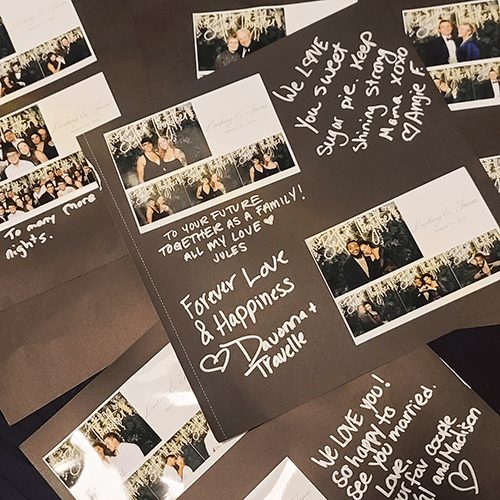 We LOVE
You sweet
Sugar pie. Keep
Shining Strong
Moma XOXO
♡Angie F.
To YOUR FUTURE
TOGETHER AS A FAMILY!
ALL MY LOVE ♥
JULES
Forever Love
& Happiness
♡ Davonna +
Travelle
To many more
nights.
WE LOVE YOU!
So happy to
see you married.
Love,
fav couple
and Madison
♡